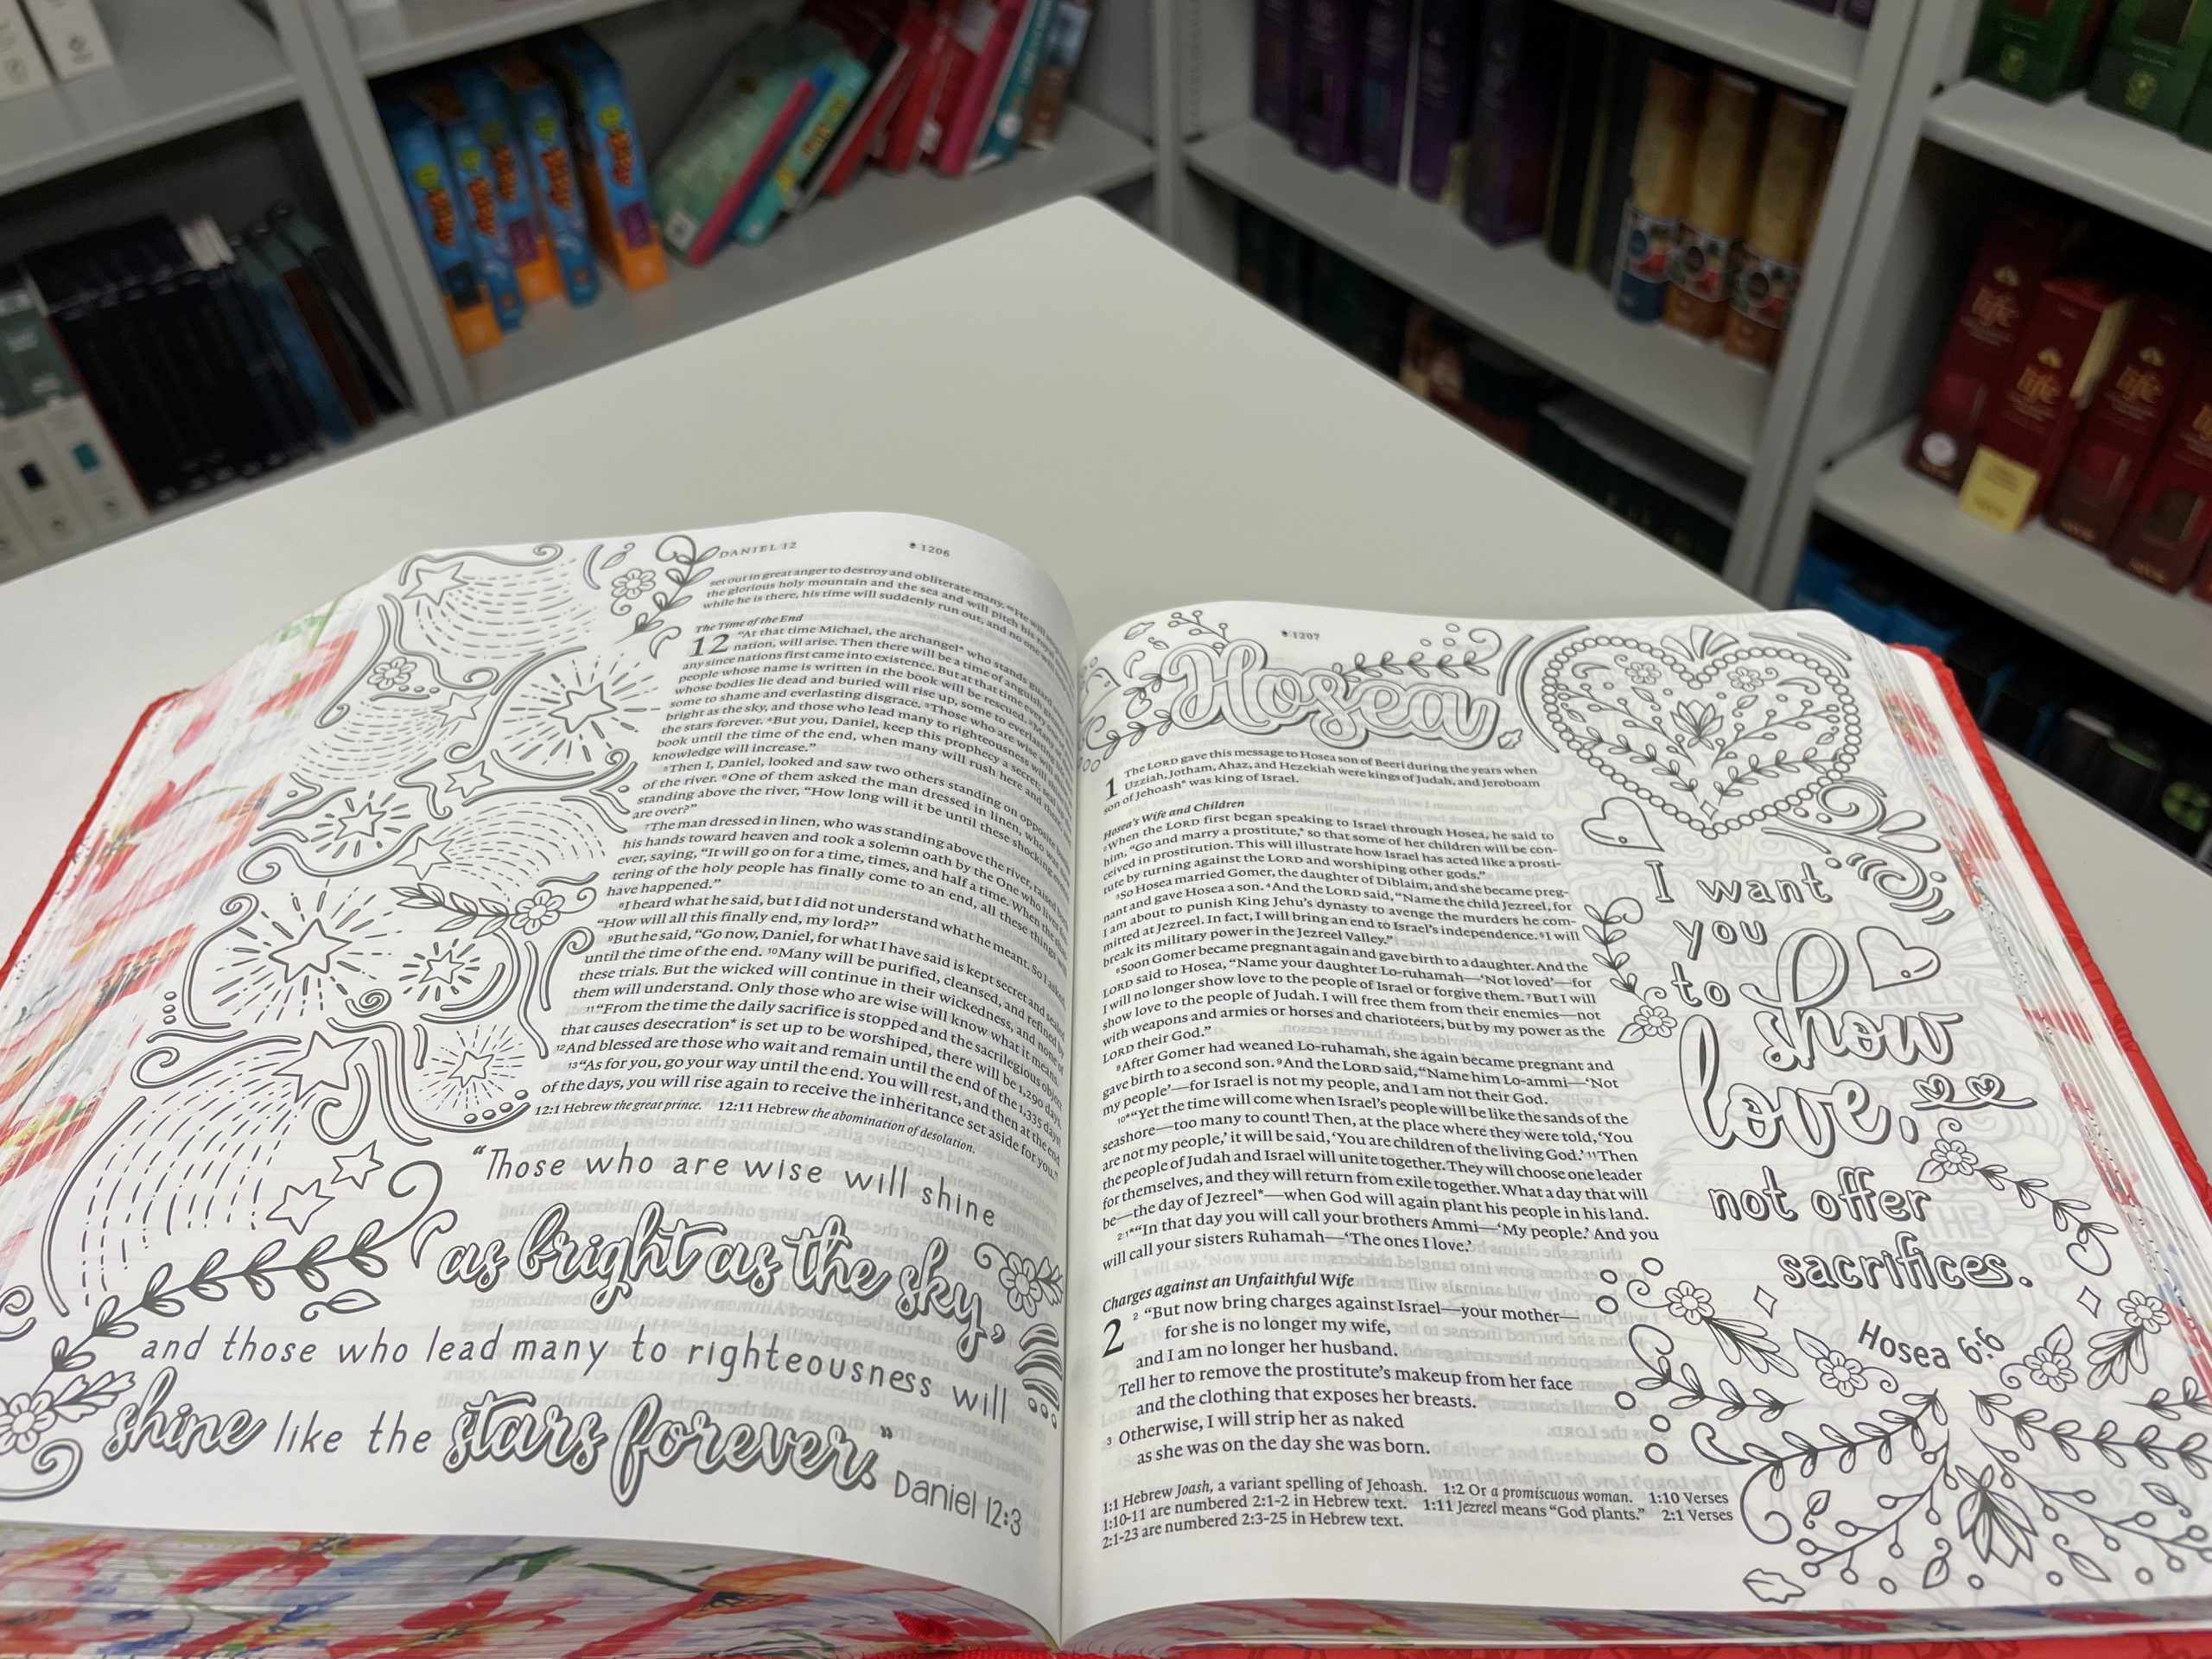 DANIEL 12
1206
set out in great anger to destroy and obliterate many.
the glorious holy mountain and the sea and will pitch his royal
while he is there, his time will suddenly run out, and no one will
The Time of the End
12 "At that time Michael, the archangel* who stands guard
nation, will arise. Then there will be a time of anguish
any since nations first came into existence. But at that time every
people whose name is written in the book will be rescued.
whose bodies lie dead and buried will rise up, some to everlasting
some to shame and everlasting disgrace. ³Those who are wise will
bright as the sky, and those who lead many to righteousness will shine
the stars forever. ⁴But you, Daniel, keep this prophecy a secret; seal
book until the time of the end, when many will rush here and
knowledge will increase."
⁵Then I, Daniel, looked and saw two others standing on opposite
of the river. ⁶One of them asked the man dressed in linen, who was
standing above the river, "How long will it be until these shocking
are over?"
⁷The man dressed in linen, who was standing above the river, raised
his hands toward heaven and took a solemn oath by the One who lives
ever, saying, "It will go on for a time, times, and half a time. When the
tering of the holy people has finally come to an end, all these things
have happened."
⁸I heard what he said, but I did not understand what he meant. So I asked,
"How will all this finally end, my lord?"
⁹But he said, "Go now, Daniel, for what I have said is kept secret and sealed
until the time of the end. ¹⁰Many will be purified, cleansed, and refined by
these trials. But the wicked will continue in their wickedness, and none of
them will understand. Only those who are wise will know what it means.
¹¹"From the time the daily sacrifice is stopped and the sacrilegious object
that causes desecration* is set up to be worshiped, there will be 1,290 days.
¹²And blessed are those who wait and remain until the end of the 1,335 days!
¹³"As for you, go your way until the end. You will rest, and then at the end
of the days, you will rise again to receive the inheritance set aside for you."
12:1 Hebrew the great prince. 12:11 Hebrew the abomination of desolation.
"Those who are wise will shine
as bright as the sky,
and those who lead many to righteousness will
shine like the stars forever."
Daniel 12:3
1207
Hosea
1 The LORD gave this message to Hosea son of Beeri during the years when
Uzziah, Jotham, Ahaz, and Hezekiah were kings of Judah, and Jeroboam
son of Jehoash* was king of Israel.
Hosea's Wife and Children
²When the LORD first began speaking to Israel through Hosea, he said to
him, "Go and marry a prostitute,* so that some of her children will be con-
ceived in prostitution. This will illustrate how Israel has acted like a prosti-
tute by turning against the LORD and worshiping other gods."
³So Hosea married Gomer, the daughter of Diblaim, and she became preg-
nant and gave Hosea a son. ⁴And the LORD said, "Name the child Jezreel, for
I am about to punish King Jehu's dynasty to avenge the murders he com-
mitted at Jezreel. In fact, I will bring an end to Israel's independence. ⁵I will
break its military power in the Jezreel Valley."
⁶Soon Gomer became pregnant again and gave birth to a daughter. And the
LORD said to Hosea, "Name your daughter Lo-ruhamah—'Not loved'—for
I will no longer show love to the people of Israel or forgive them. ⁷But I will
show love to the people of Judah. I will free them from their enemies—not
with weapons and armies or horses and charioteers, but by my power as the
LORD their God."
⁸After Gomer had weaned Lo-ruhamah, she again became pregnant and
gave birth to a second son. ⁹And the LORD said, "Name him Lo-ammi—'Not
my people'—for Israel is not my people, and I am not their God.
¹⁰*"Yet the time will come when Israel's people will be like the sands of the
seashore—too many to count! Then, at the place where they were told, 'You
are not my people,' it will be said, 'You are children of the living God.' ¹¹Then
the people of Judah and Israel will unite together. They will choose one leader
for themselves, and they will return from exile together. What a day that will
be—the day of Jezreel*—when God will again plant his people in his land.
²:¹*"In that day you will call your brothers Ammi—'My people.' And you
will call your sisters Ruhamah—'The ones I love.'
Charges against an Unfaithful Wife
2 ² "But now bring charges against Israel—your mother—
for she is no longer my wife,
and I am no longer her husband.
Tell her to remove the prostitute's makeup from her face
and the clothing that exposes her breasts.
³ Otherwise, I will strip her as naked
as she was on the day she was born.
1:1 Hebrew Joash, a variant spelling of Jehoash. 1:2 Or a promiscuous woman. 1:10 Verses
1:10-11 are numbered 2:1-2 in Hebrew text. 1:11 Jezreel means "God plants." 2:1 Verses
2:1-23 are numbered 2:3-25 in Hebrew text.
I want
you
to show
love,
not offer
sacrifices.
Hosea 6:6
life
life
life